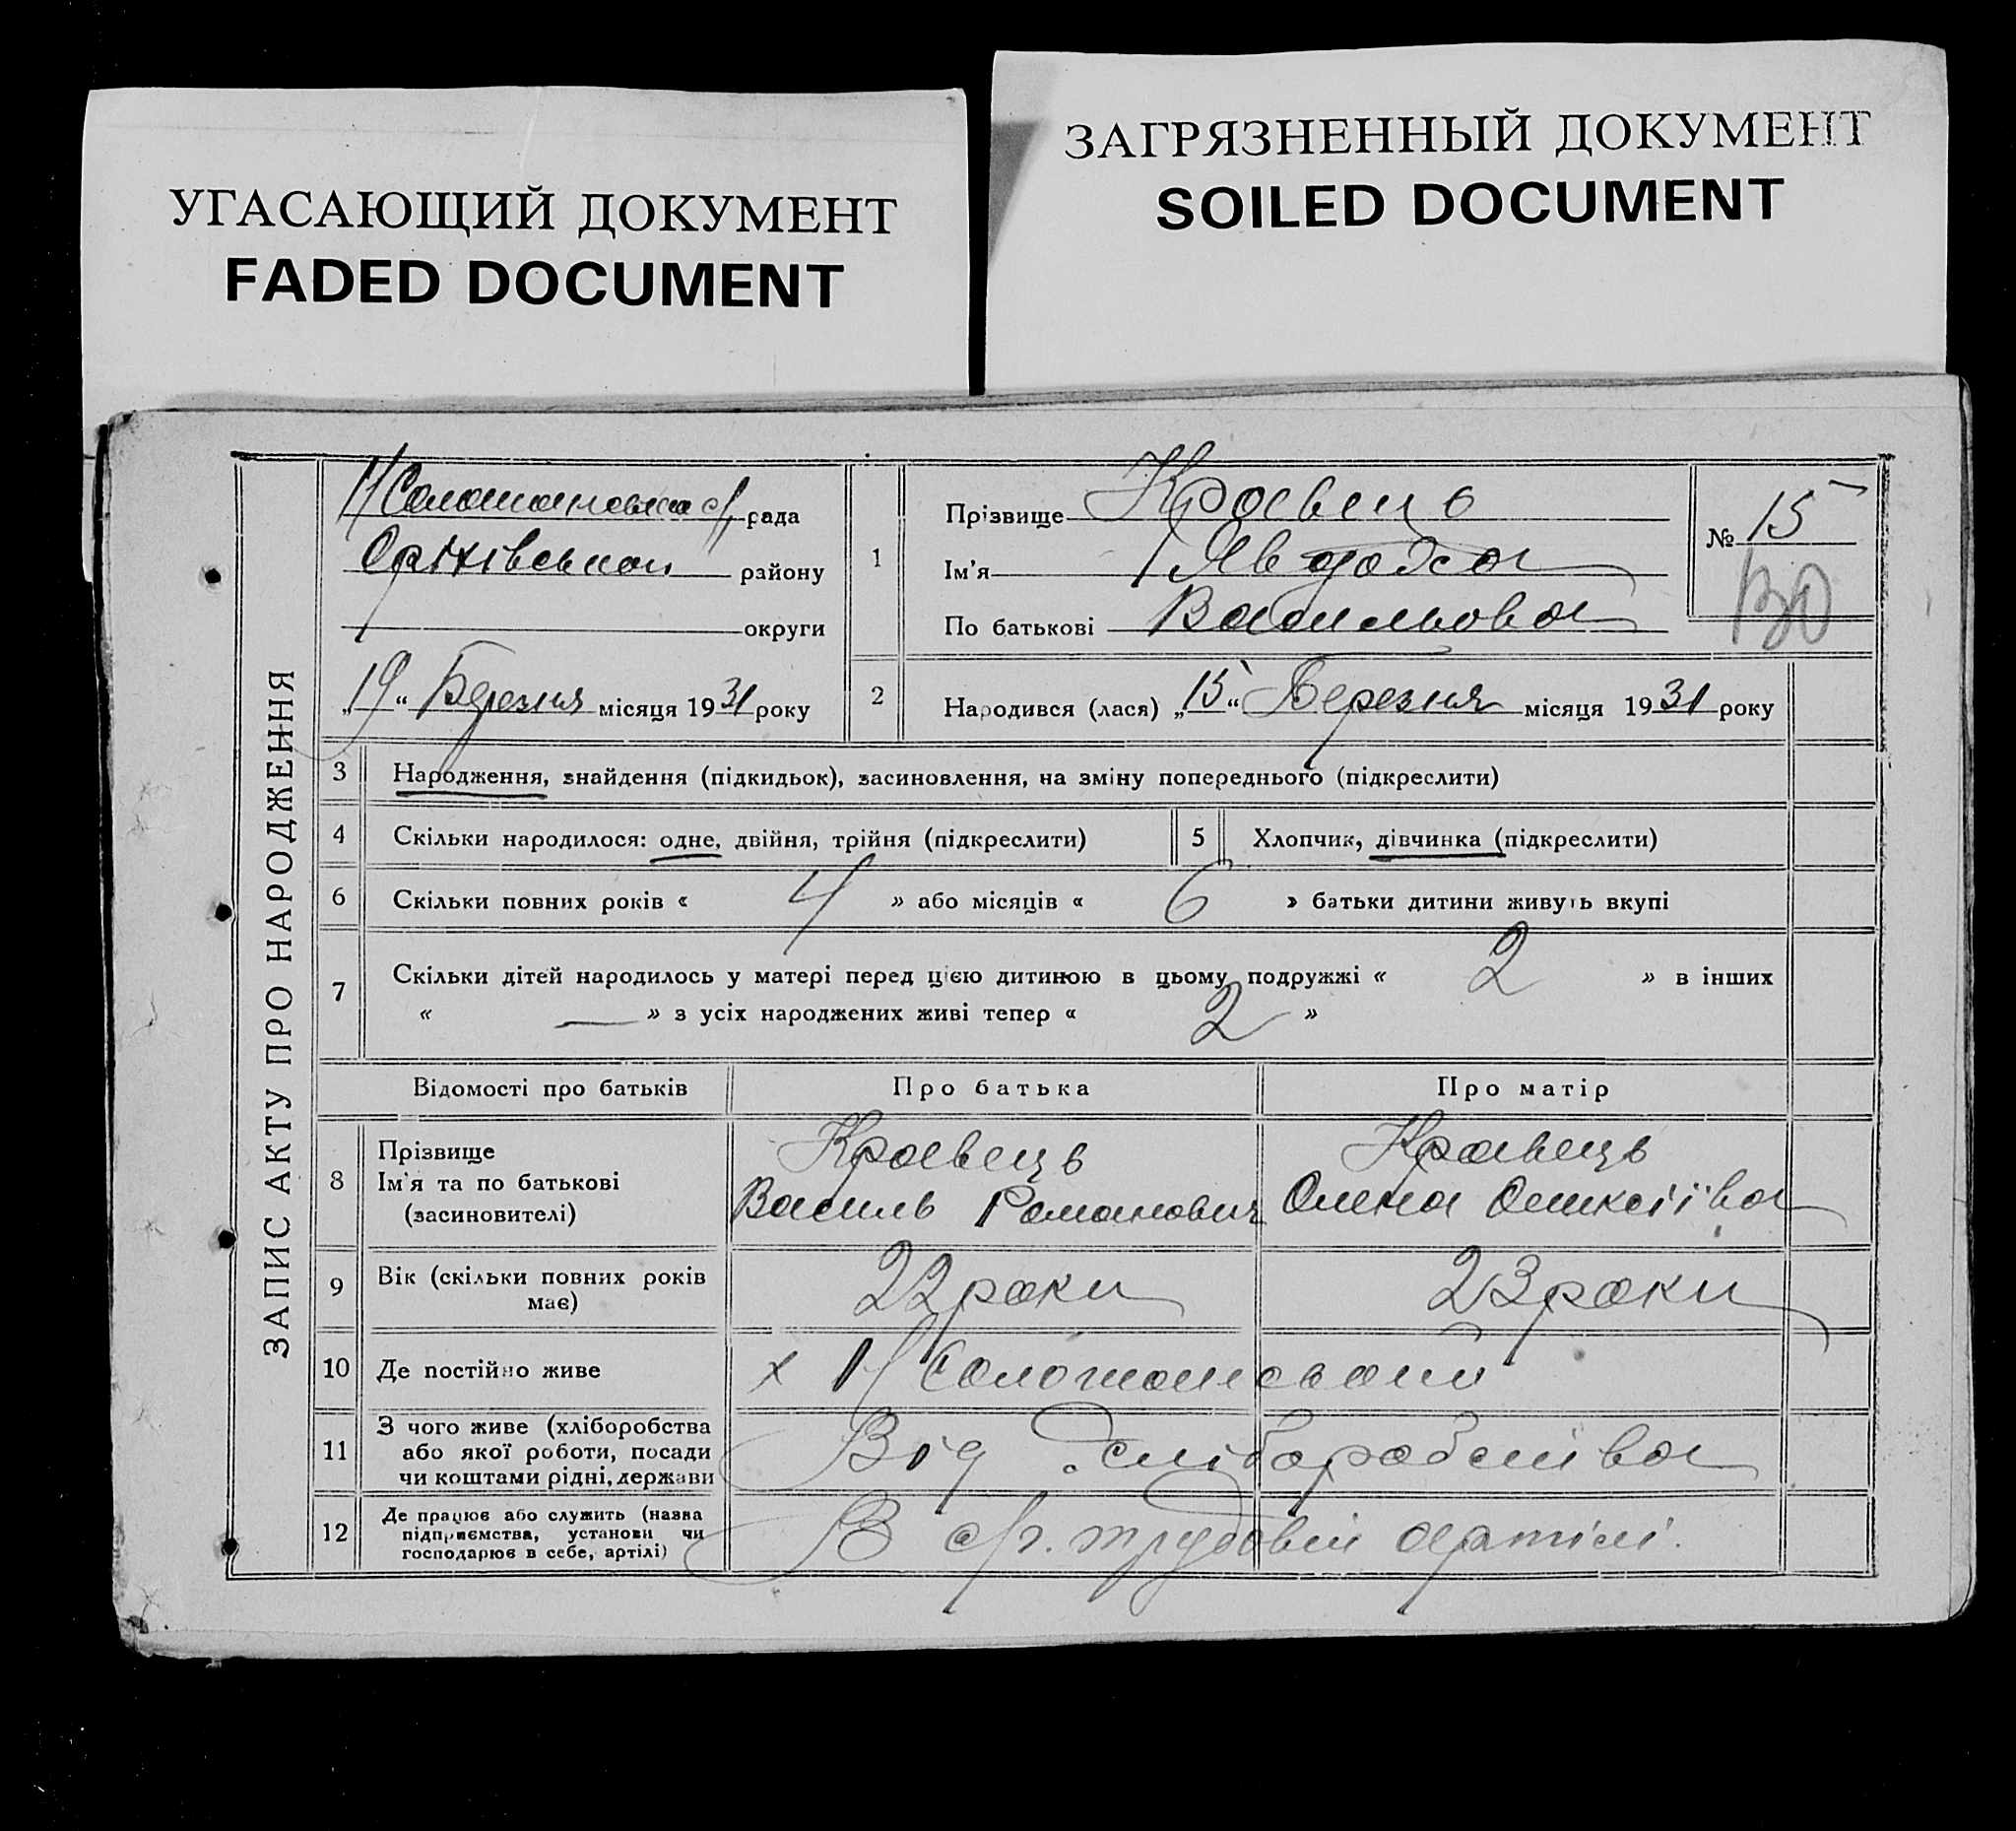 УГАСАЮЩИЙ ДОКУМЕНТ
FADED DOCUMENT
ЗАГРЯЗНЕННЫЙ ДОКУМЕНТ
SOILED DOCUMENT
ЗАПИС АКТУ ПРО НАРОДЖЕННЯ
рада
Оріхівський району
округи
„19“ Березня місяця 1931 року
1
Прізвище Кравець
Ім'я Явдоха
По батькові Васильовна
№ 15
130
2 Народився (лася) „15“ Березня місяця 1931 року
3 Народження, знайдення (підкидьок), засиновлення, на зміну попереднього (підкреслити)
4 Скільки народилося: одне, двійня, трійня (підкреслити) 5 Хлопчик, дівчинка (підкреслити)
6 Скільки повних років « 4 » або місяців « 6 » батьки дитини живуть вкупі
7 Скільки дітей народилось у матері перед цією дитиною в цьому подружжі « 2 » в інших
« — » з усіх народжених живі тепер « 2 »
Відомості про батьків Про батька Про матір
8 Прізвище Кравець Кравець
Ім'я та по батькові Василь Романович Олена Олексіївна
(засиновителі)
9 Вік (скільки повних років має) 22 роки 23 роки
10 Де постійно живе х
11 З чого живе (хліборобства
або якої роботи, посади
чи коштами рідні, держави Від хліборобства
12 Де працює або служить (назва
підприємства, установи чи
господарює в себе, артілі) В с/г. трудовій артілі.